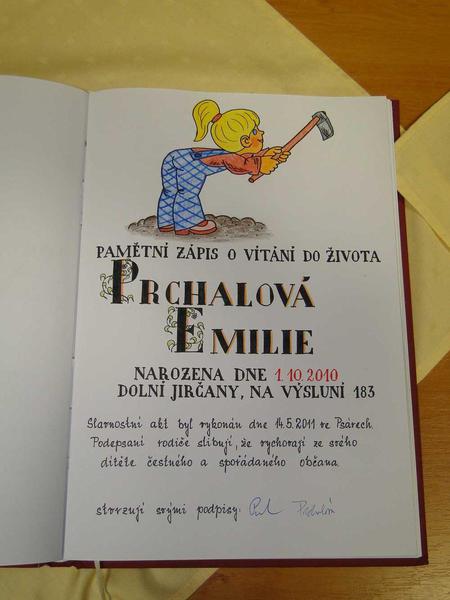 PAMĚTNÍ ZÁPIS O VÍTÁNÍ DO ŽIVOTA
PRCHALOVÁ
EMILIE
NAROZENA DNE 1.10.2010
DOLNÍ JIRČANY, NA VÝSLUNÍ 183
Slavnostní akt byl vykonán dne 14.5.2011 ve Psárech.
Podepsaní rodiče slibují, že vychovají ze svého
dítěte čestného a spořádaného občana.
stvrzují svými podpisy: